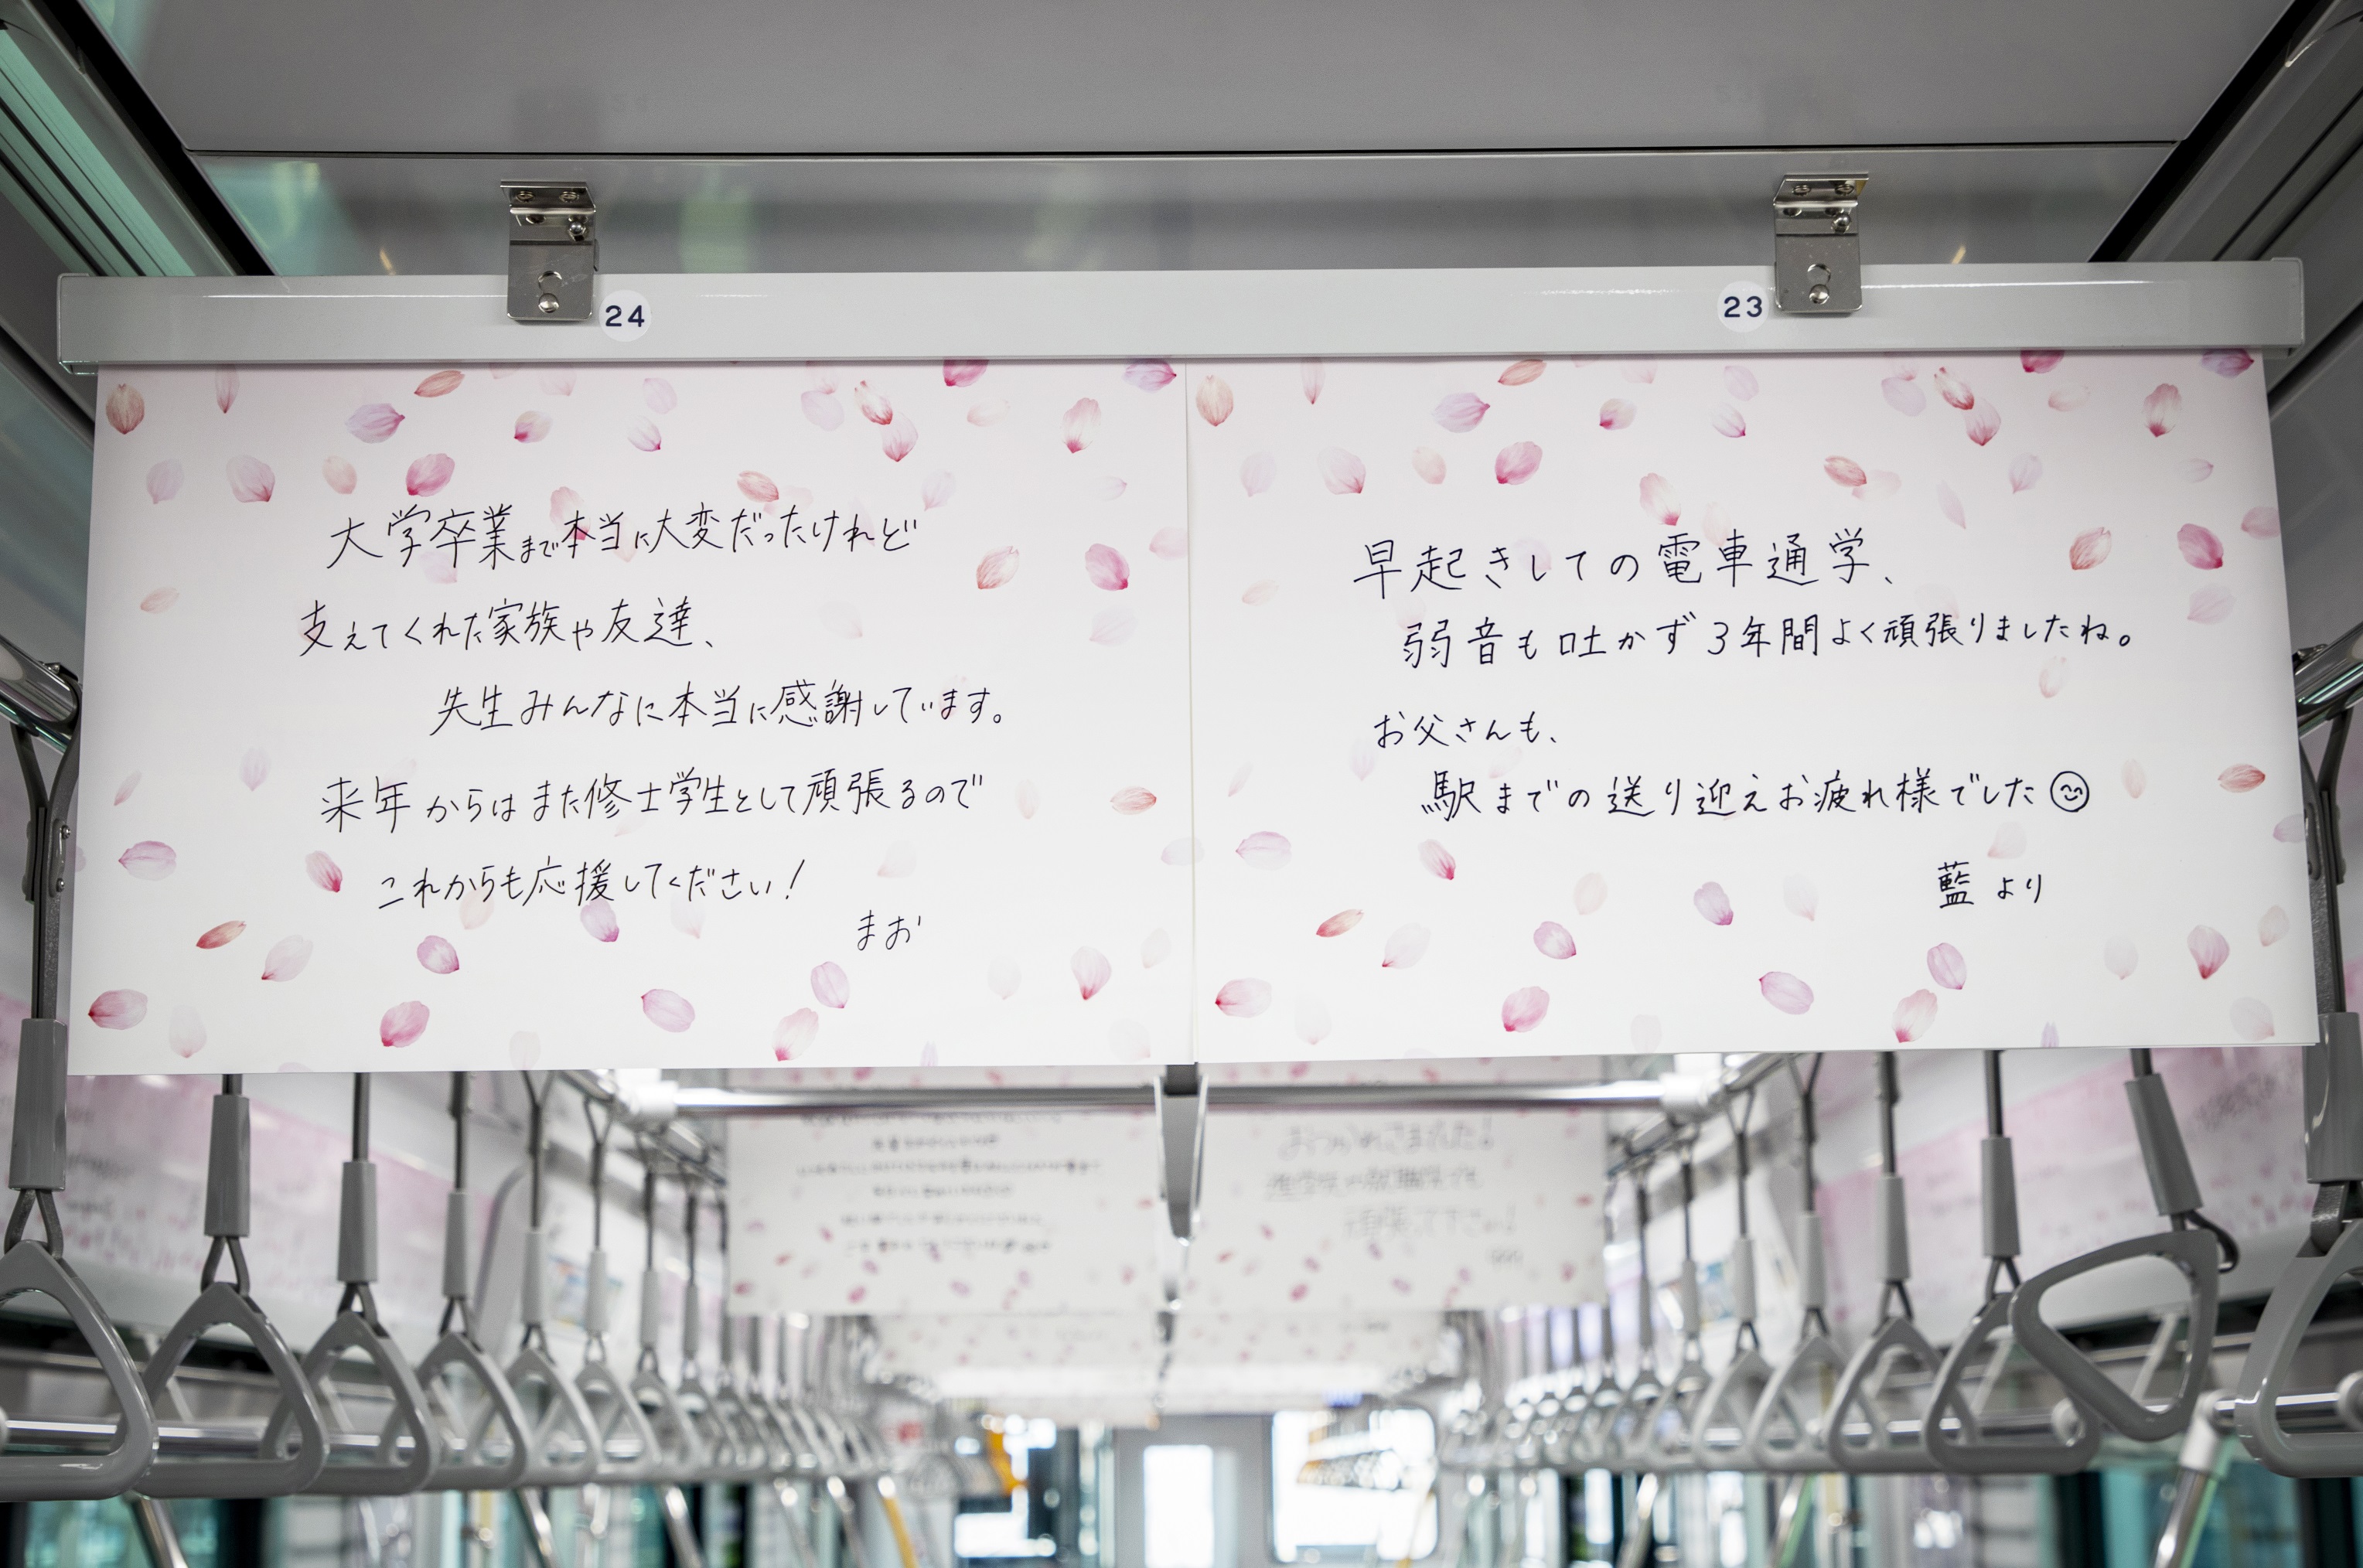 24
大学卒業まで本当に大変だったけれど
支えてくれた家族や友達、
先生みんなに本当に感謝しています。
来年からはまた修士学生として頑張るので
これからも応援してください!
まお
23
早起きしての電車通学、
弱音も吐かず3年間よく頑張りましたね。
お父さんも、
駅までの送り迎えお疲れ様でした
藍より
おつかれさまでした!
頑張って下さい!